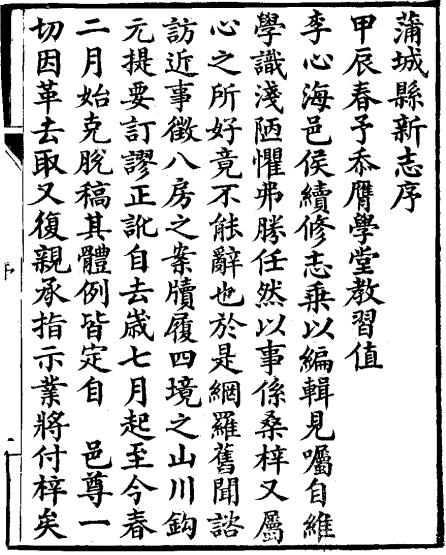 蒲城縣新志序
甲辰春予忝膺學堂教習值
李心海邑侯續修志乘以編輯見囑自維
學識淺陋懼弗勝任然以事係桑梓又屬
心之所好竟不能辭也於是網羅舊聞諮
訪近事徵八房之案牘履四境之山川鈎
元提要訂謬正訛自去歲七月起至今春
二月始克脫稿其體例皆定自 邑尊一
切因革去取又復親承指示業將付梓矣
序
一